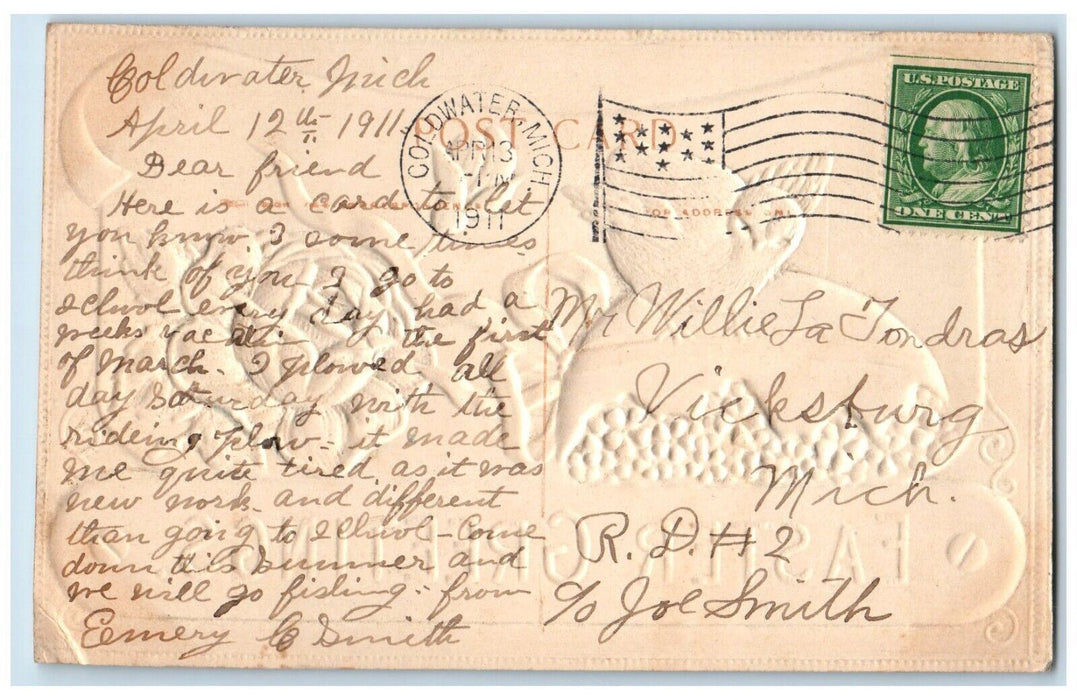 Coldwater, Mich
April 12th 1911
Dear friend
Here is a card to let
you know. I some times
think of you. I go to
school every day had a
weeks vacation the first
of March. I plowed all
day Saturday with the
rideing plow - it made
me quite tired as it was
new work and different
than going to school - Come
down this Summer and
we will go fishing - from
Emery C Smith
POST CARD
COLDWATER, MICH.
APR 13
1911
U.S. POSTAGE
ONE CENT
FOR ADDRESS ONLY
Mr Willie La Tondras
Vicksburg
Mich.
R. D. # 2
c/o Joe Smith
EASTER GREETINGS